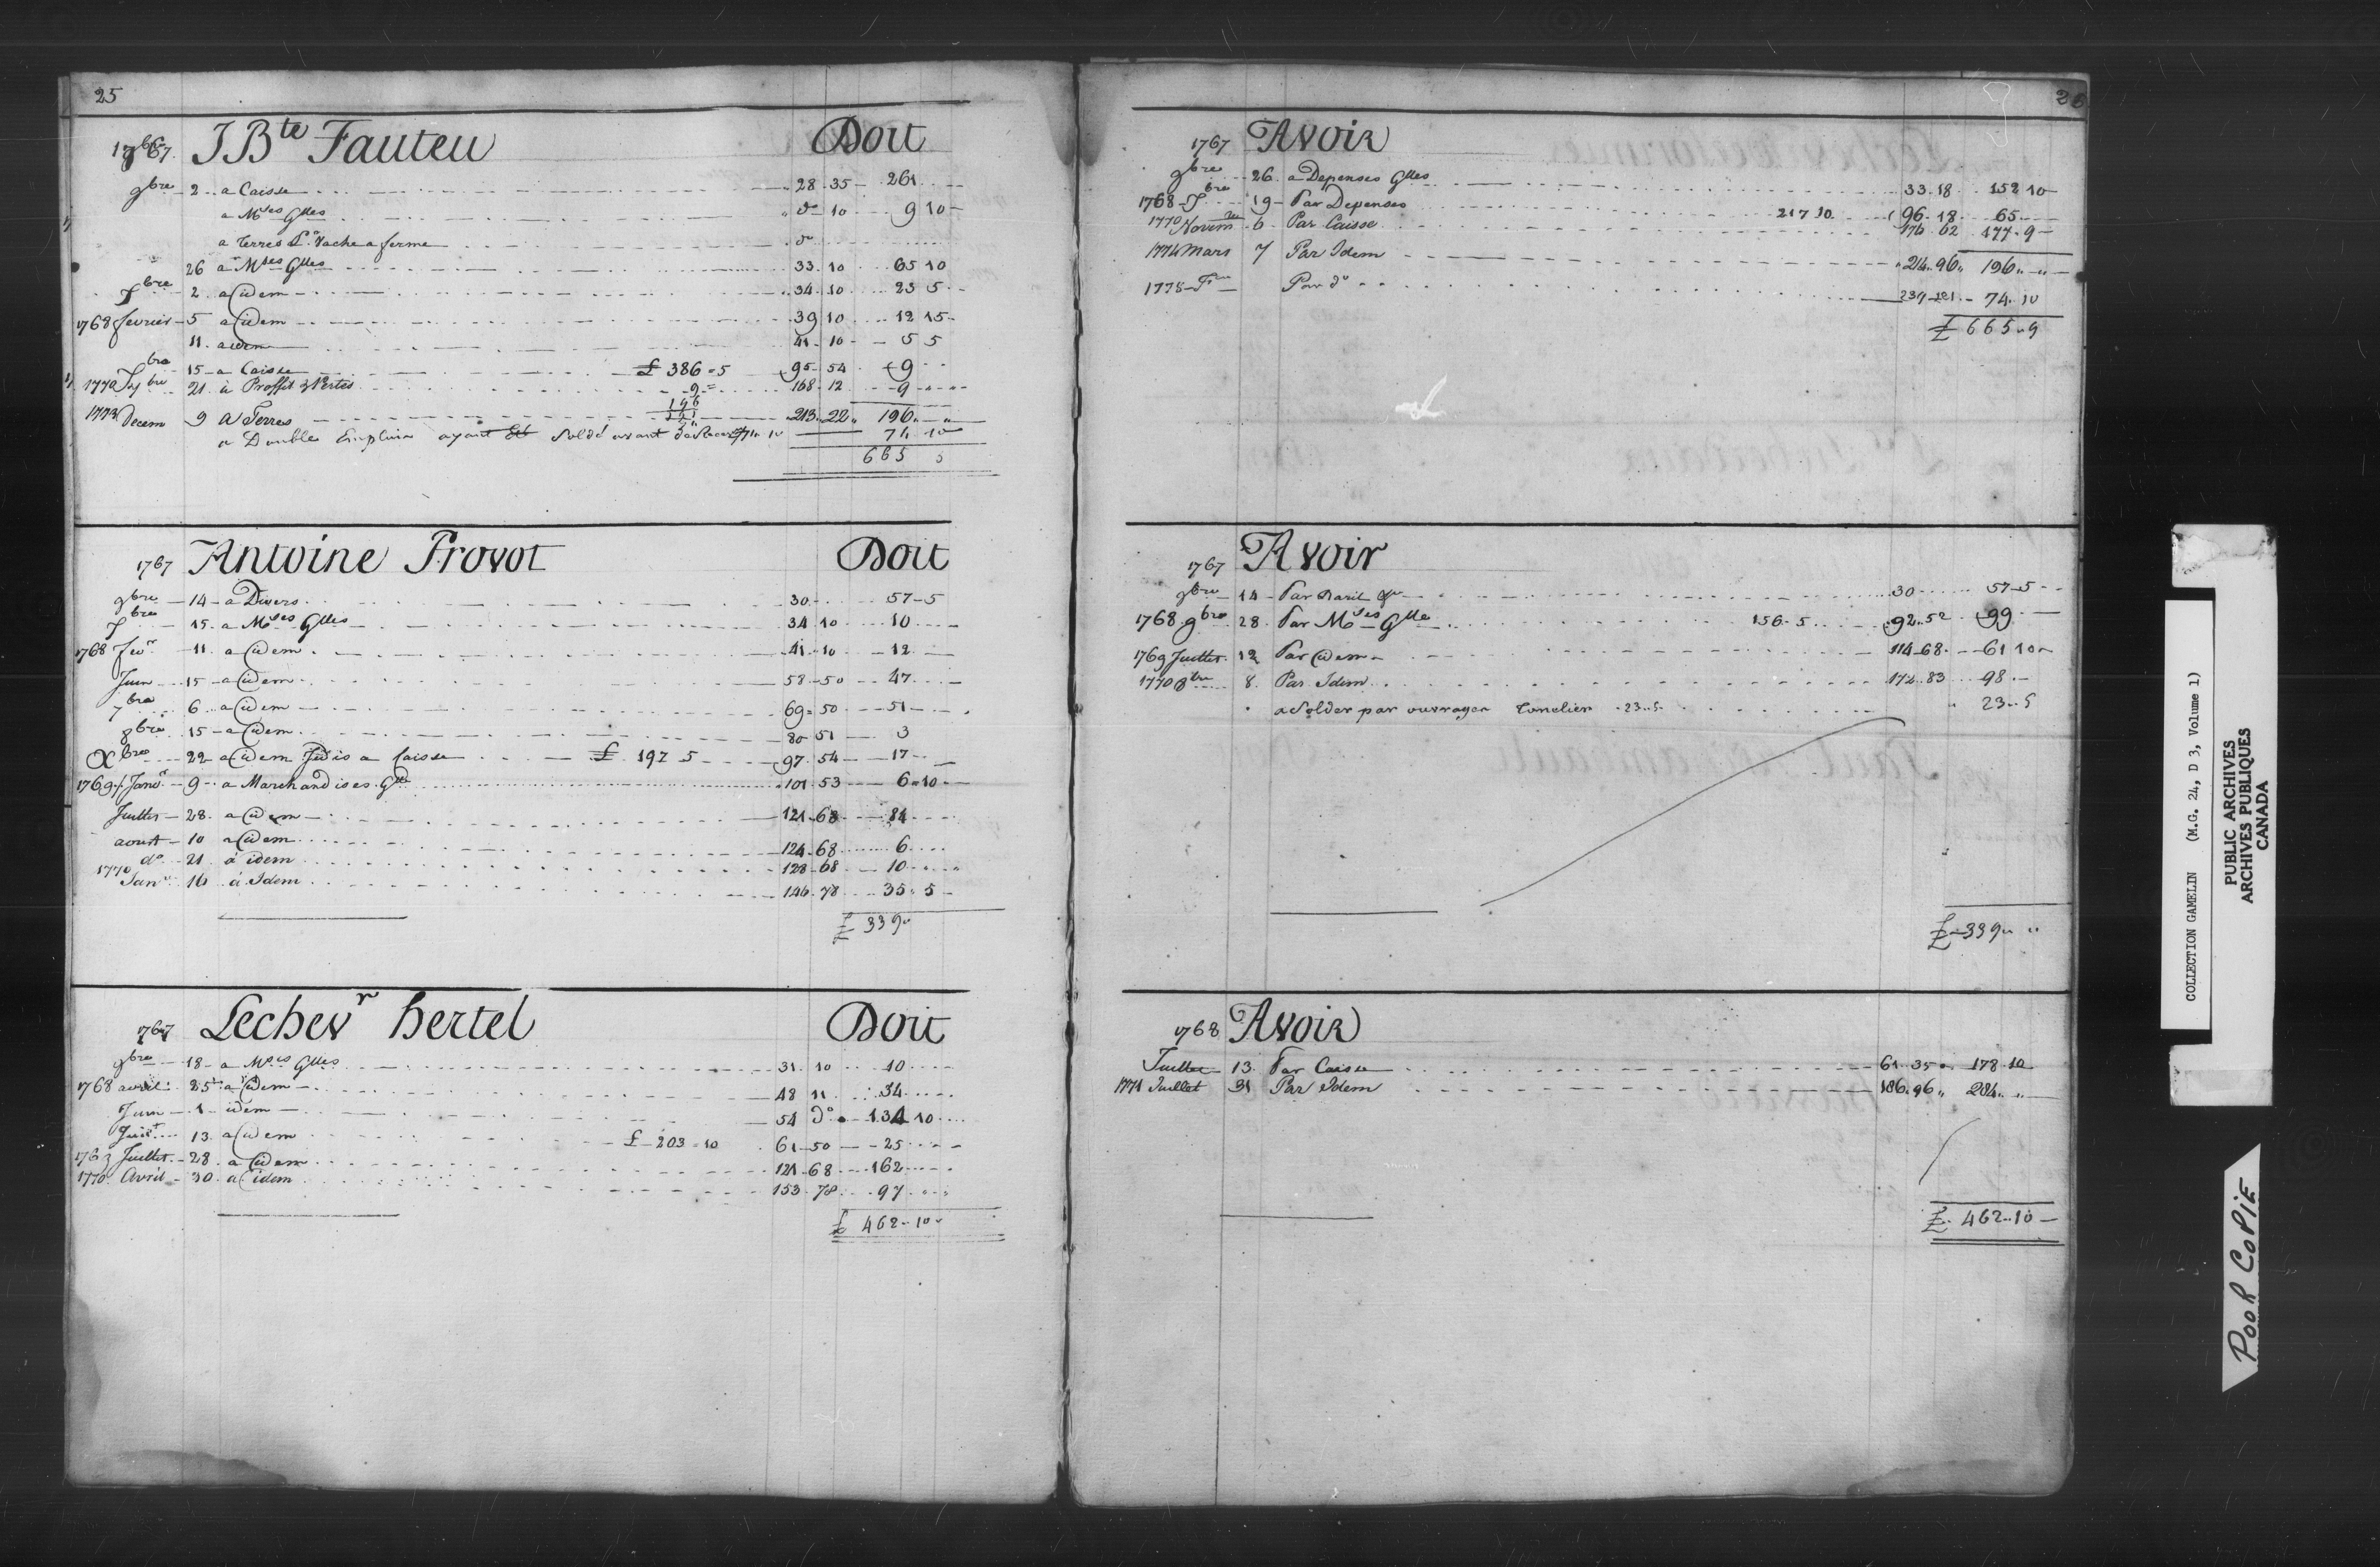 25
1767 J Bte Fauteu Doit
9bre 2 a Caisse 28 35 261
a Mses Glles do 10 9 10
a Terres Pr Vache a ferme do
26 a Mses Glles 33 10 65 10
Xbre 2 a Idem 34 10 23 5
1768 fevrier 5 a Idem 39 10 12 15
11 a idem 41 10 5 5
bre 15 a Caisse £ 386 5 95 54 9
1770 7bre 21 à Proffit & Pertes 9 168 12 9
196
1773 Decem 9 a Terres 213 22 196
a Double Emploia ayant été Soldé avant 74 10 74 10
665 5
1767 Antoine Provot Doit
9bre 14 a Divers 30 57 5
Xbre 15 a Mses Glles 34 10 10
1768 fevr 11 a Idem 41 10 12
Juin 15 a Idem 58 50 47
7bre 6 a Idem 69 50 51
8bre 15 a Idem 80 51 3
Xbre 22 a Idem Idis a Caisse £ 197 5 97 54 17
1769 Janvr 9 a Marchandises Glles 101 53 6 10
Juillet 28 a Idem 121 68 84
aoust 10 a Idem 124 68 6
do 21 à idem 128 68 10
1770 Janr 16 à Idem 146 78 35 5
£ 339
1767 Lechevr hertel Doit
9bre 18 a Mses Glles 31 10 10
1768 avril 25 a Idem 48 11 34
Juin 1 idem 54 do 134 10
Juilt 13 a Idem £ 203 10 61 50 25
1769 Juillet 28 a Idem 121 68 162
1770 Avril 30 a idem 153 78 97
£ 462 10
26
1767 Avoir
9bre 26 a Depenses Glles 33 18 152 10
1768 Xbre 19 Par Depenses 217 10 96 18 65
1770 Novemre 6 Par Caisse 176 62 177 9
1774 Mars 7 Par Idem 214 96 196
1778 Par do 237 121 74 10
£ 665 9
1767 Avoir
9bre 14 Par Baril 30 57 5
1768 9bre 28 Par Mses Glle 156 5 92 52 99
1769 Juillet 12 Par Idem 114 68 61 10
1770 8bre 8 Par Idem 172 83 98
a Solder par ouvrages Tonelier 23 5 23 5
£ 339
1768 Avoir
Juillet 13 Par Caisse 61 35 178 10
1771 Juillet 31 Par Idem 186 96 284
£ 462 10
COLLECTION GAMELIN (M.G. 24, D 3, Volume 1)
PUBLIC ARCHIVES
ARCHIVES PUBLIQUES
CANADA
POOR COPIE